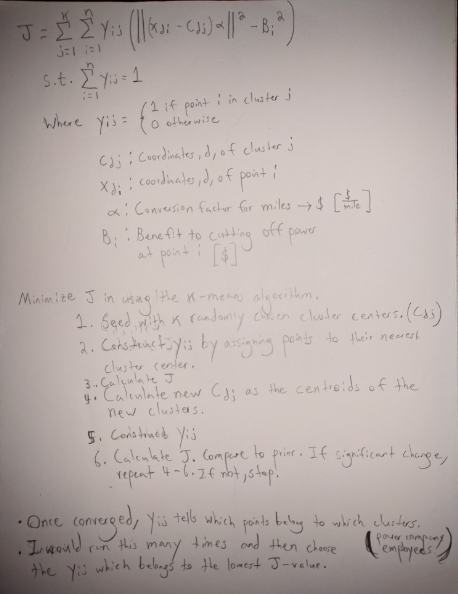 J = Σ_{j=1}^{K} Σ_{i=1}^{n} Yij (||(Xdi - Cdj)α||² - Bi²)
s.t. Σ_{i=1}^{n} Yij = 1
Where Yij = { 1 if point i in cluster j
0 otherwise
Cdj : Coordinates, d, of cluster j
Xdi : coordinates, d, of point i
α : Conversion factor for miles → $ [$/mile]
Bi : Benefit to cutting off power
at point i [$]
Minimize J in using the K-means algorithm.
1. Seed with K randomly chosen cluster centers. (Cdj)
2. Construct Yij by assigning points to their nearest
cluster center.
3. Calculate J
4. Calculate new Cdj as the centroids of the
new clusters.
5. Construct Yij
6. Calculate J. Compare to prior. If significant change,
repeat 4-6. If not, stop.
• Once converged, Yij tells which points belong to which clusters.
• I would run this many times and then choose (power company
the Yij which belongs to the lowest J-value. employees)